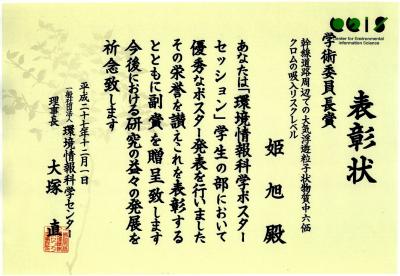 CEIS
Center for Environmental
Information Science
表彰状
学術委員長賞
幹線道路周辺での大気浮遊粒子状物質中六価
クロムの吸入リスクレベル
姫旭殿
あなたは「環境情報科学ポスター
セッション」学生の部において
優秀なポスター発表を行いました
その栄誉を讃えこれを表彰する
とともに副賞を贈呈致します
今後における研究の益々の発展を
祈念致します
平成二十五年十二月一日
一般社団法人環境情報科学センター
理事長 大塚直